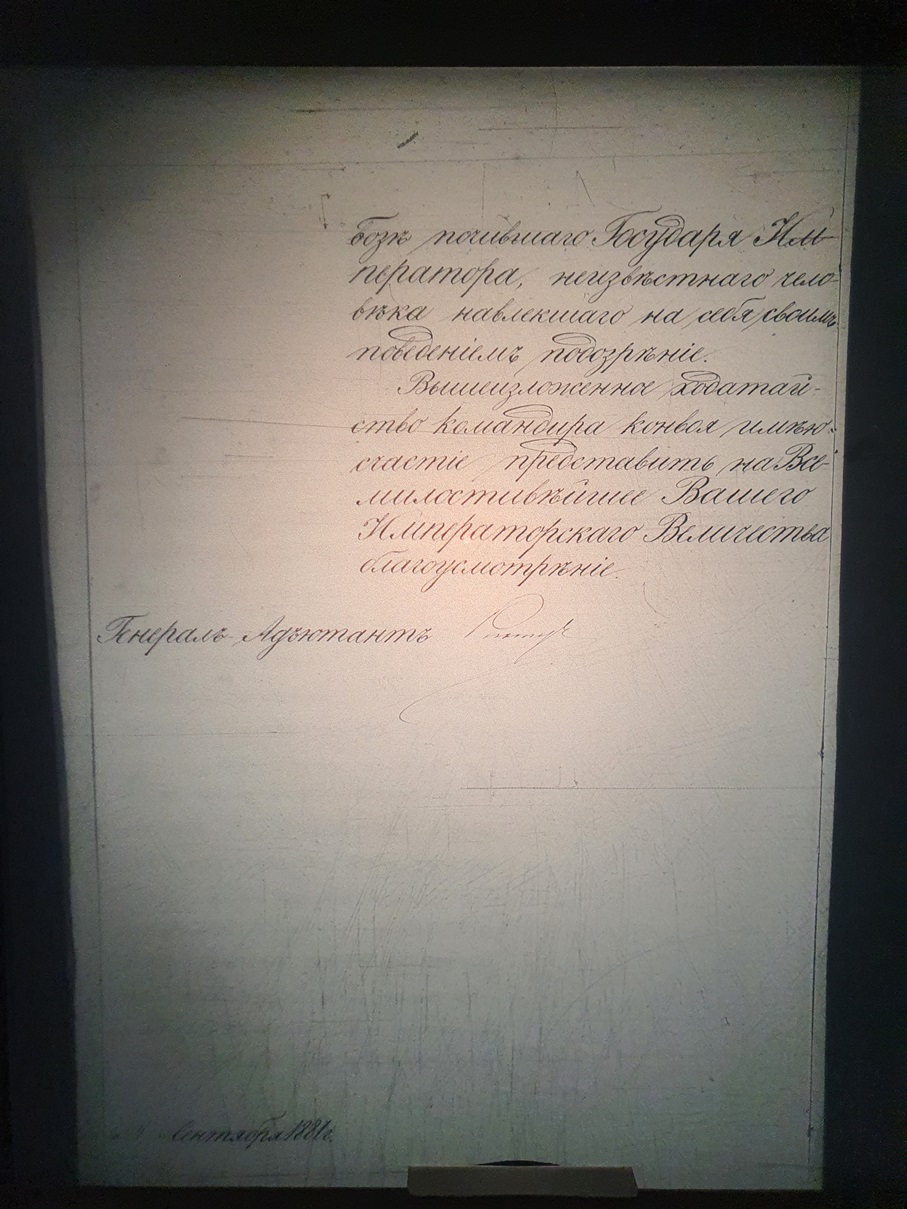 бозѣ почившаго Государя Им-
ператора, неизвѣстнаго чело-
вѣка навлекшаго на себя своимъ
поведеніемъ подозрѣніе.
Вышеизложенное ходатай-
ство командира конвоя имѣю
счастіе представить на Все-
милостивѣйшее Вашего
Императорскаго Величества
благоусмотрѣніе.
Генералъ-Адъютантъ
Сентября 1881 г.